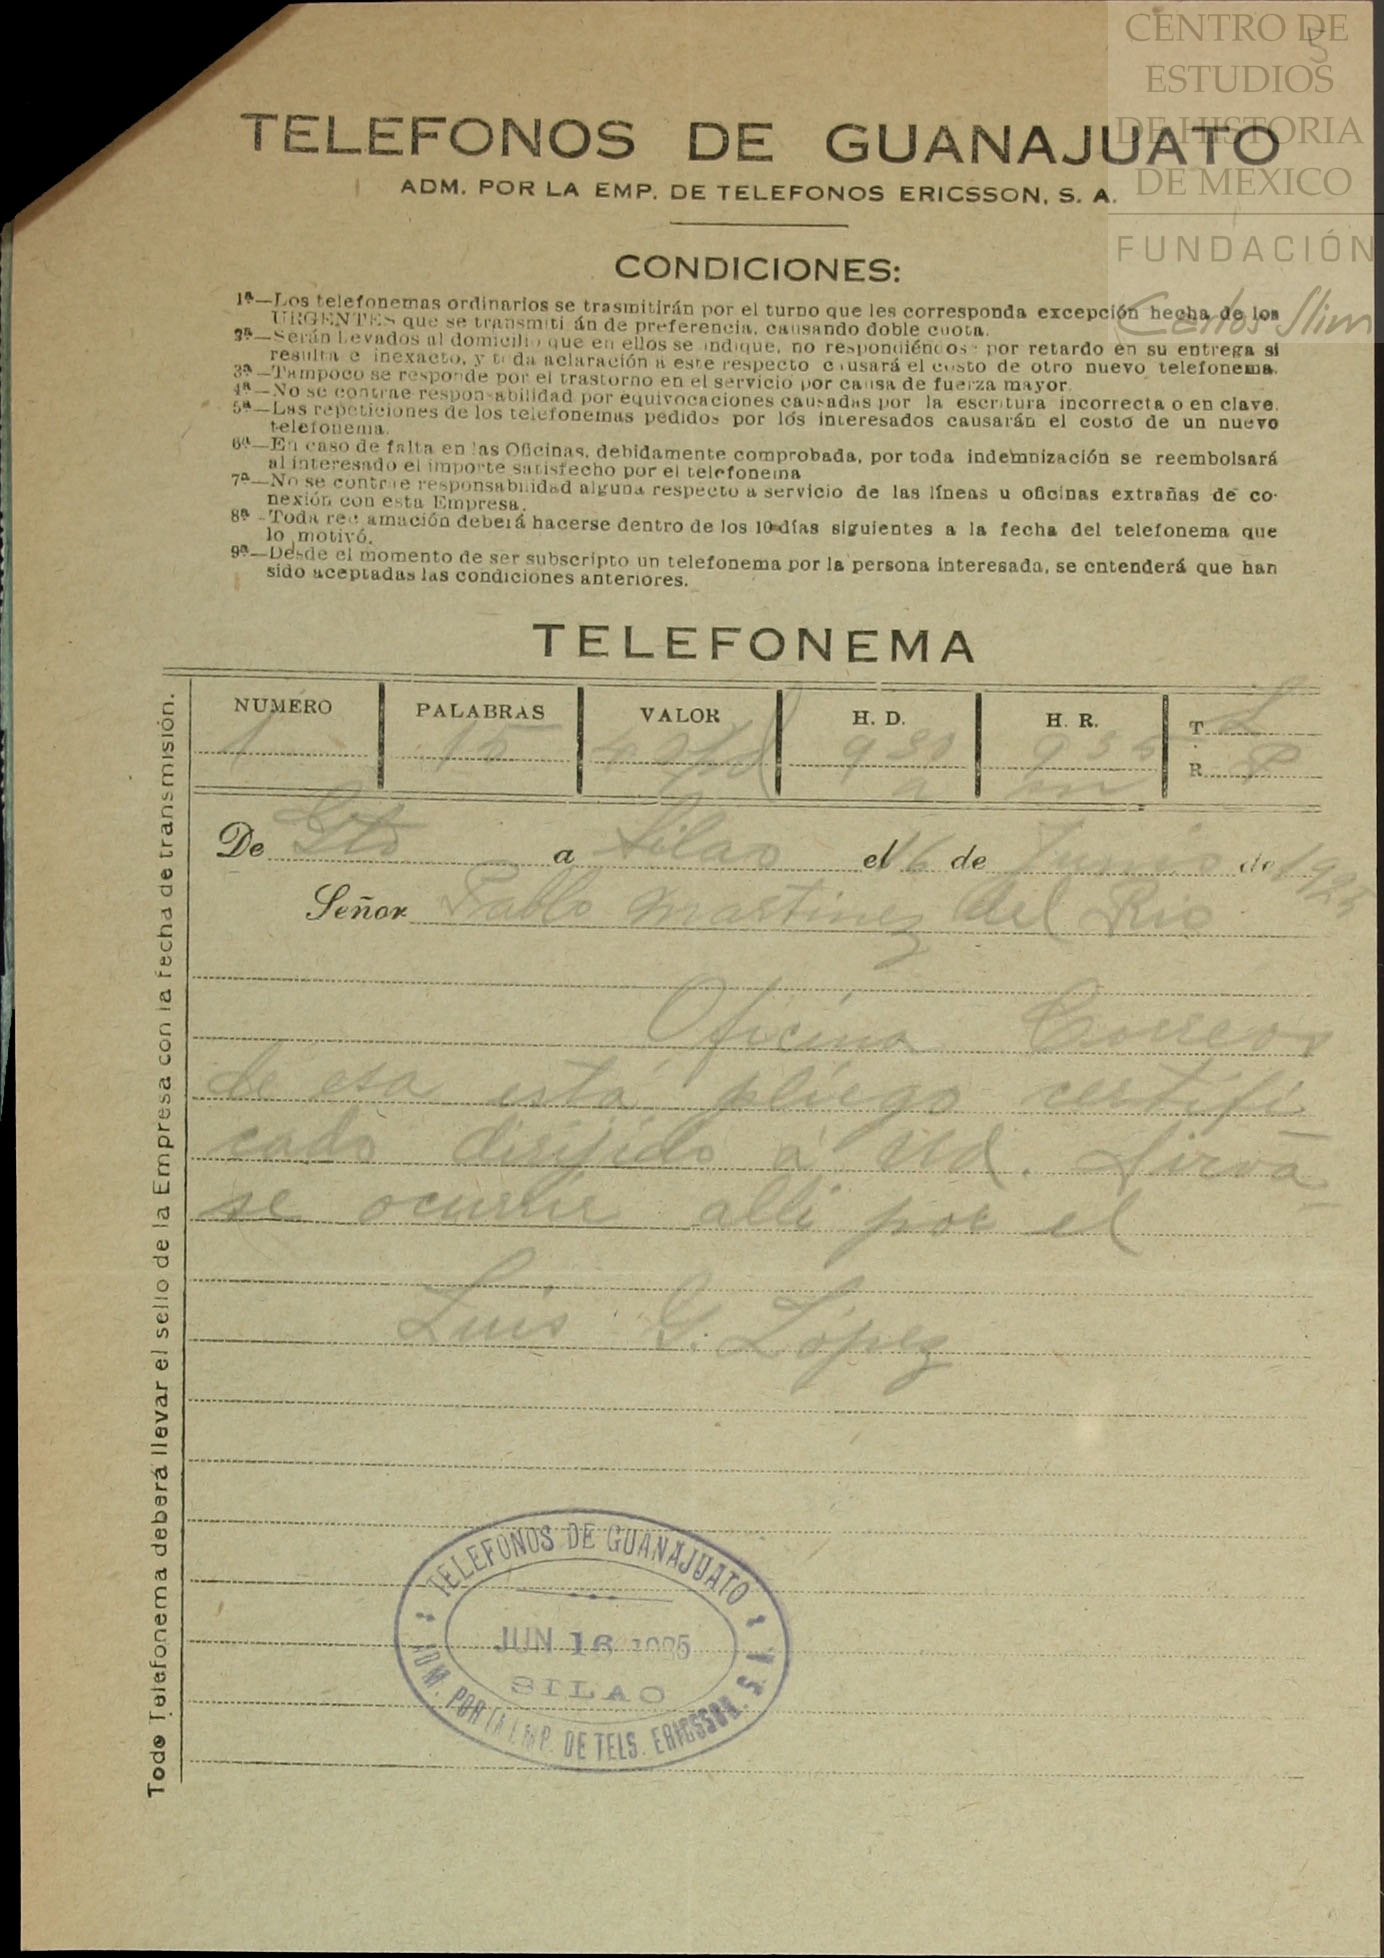 CENTRO DE
ESTUDIOS
DE HISTORIA
DE MEXICO
FUNDACIÓN
Carlos Slim
5
TELEFONOS DE GUANAJUATO
ADM. POR LA EMP. DE TELEFONOS ERICSSON, S. A.
CONDICIONES:
1ª—Los telefonemas ordinarios se trasmitirán por el turno que les corresponda excepción hecha de los
URGENTES que se transmiti án de preferencia, causando doble cuota.
2ª—Serán llevados al domicilio que en ellos se indique, no respondiéndose por retardo en su entrega si
resulta e inexacto, y toda aclaración a este respecto causará el costo de otro nuevo telefonema.
3ª—Tampoco se responde por el trastorno en el servicio por causa de fuerza mayor.
4ª—No se contrae responsabilidad por equivocaciones causadas por la escritura incorrecta o en clave.
5ª—Las repeticiones de los telefonemas pedidos por los interesados causarán el costo de un nuevo
telefonema.
6ª—En caso de falta en las Oficinas, debidamente comprobada, por toda indemnización se reembolsará
al interesado el importe satisfecho por el telefonema
7ª—No se contrae responsabilidad alguna respecto a servicio de las líneas u oficinas extrañas de co-
nexión con esta Empresa.
8ª—Toda rec amación deberá hacerse dentro de los 10 días siguientes a la fecha del telefonema que
lo motivó.
9ª—Desde el momento de ser subscripto un telefonema por la persona interesada, se entenderá que han
sido aceptadas las condiciones anteriores.
TELEFONEMA
NUMERO PALABRAS VALOR H. D. H. R. T L
1 15 R P
De Gto a Silao el 16 de Junio de 1925
Señor Pablo Martinez del Rio
Oficina Correos
de esa está pliego certifi
cado dirijido á Ud. Sirva
se ocurrir alli por el
Luis G. López
Todo Telefonema deberá llevar el sello de la Empresa con la fecha de transmisión.
TELEFONOS DE GUANAJUATO
JUN 16 1925
SILAO
ADM. POR LA EMP. DE TELS. ERICSSON, S. A.